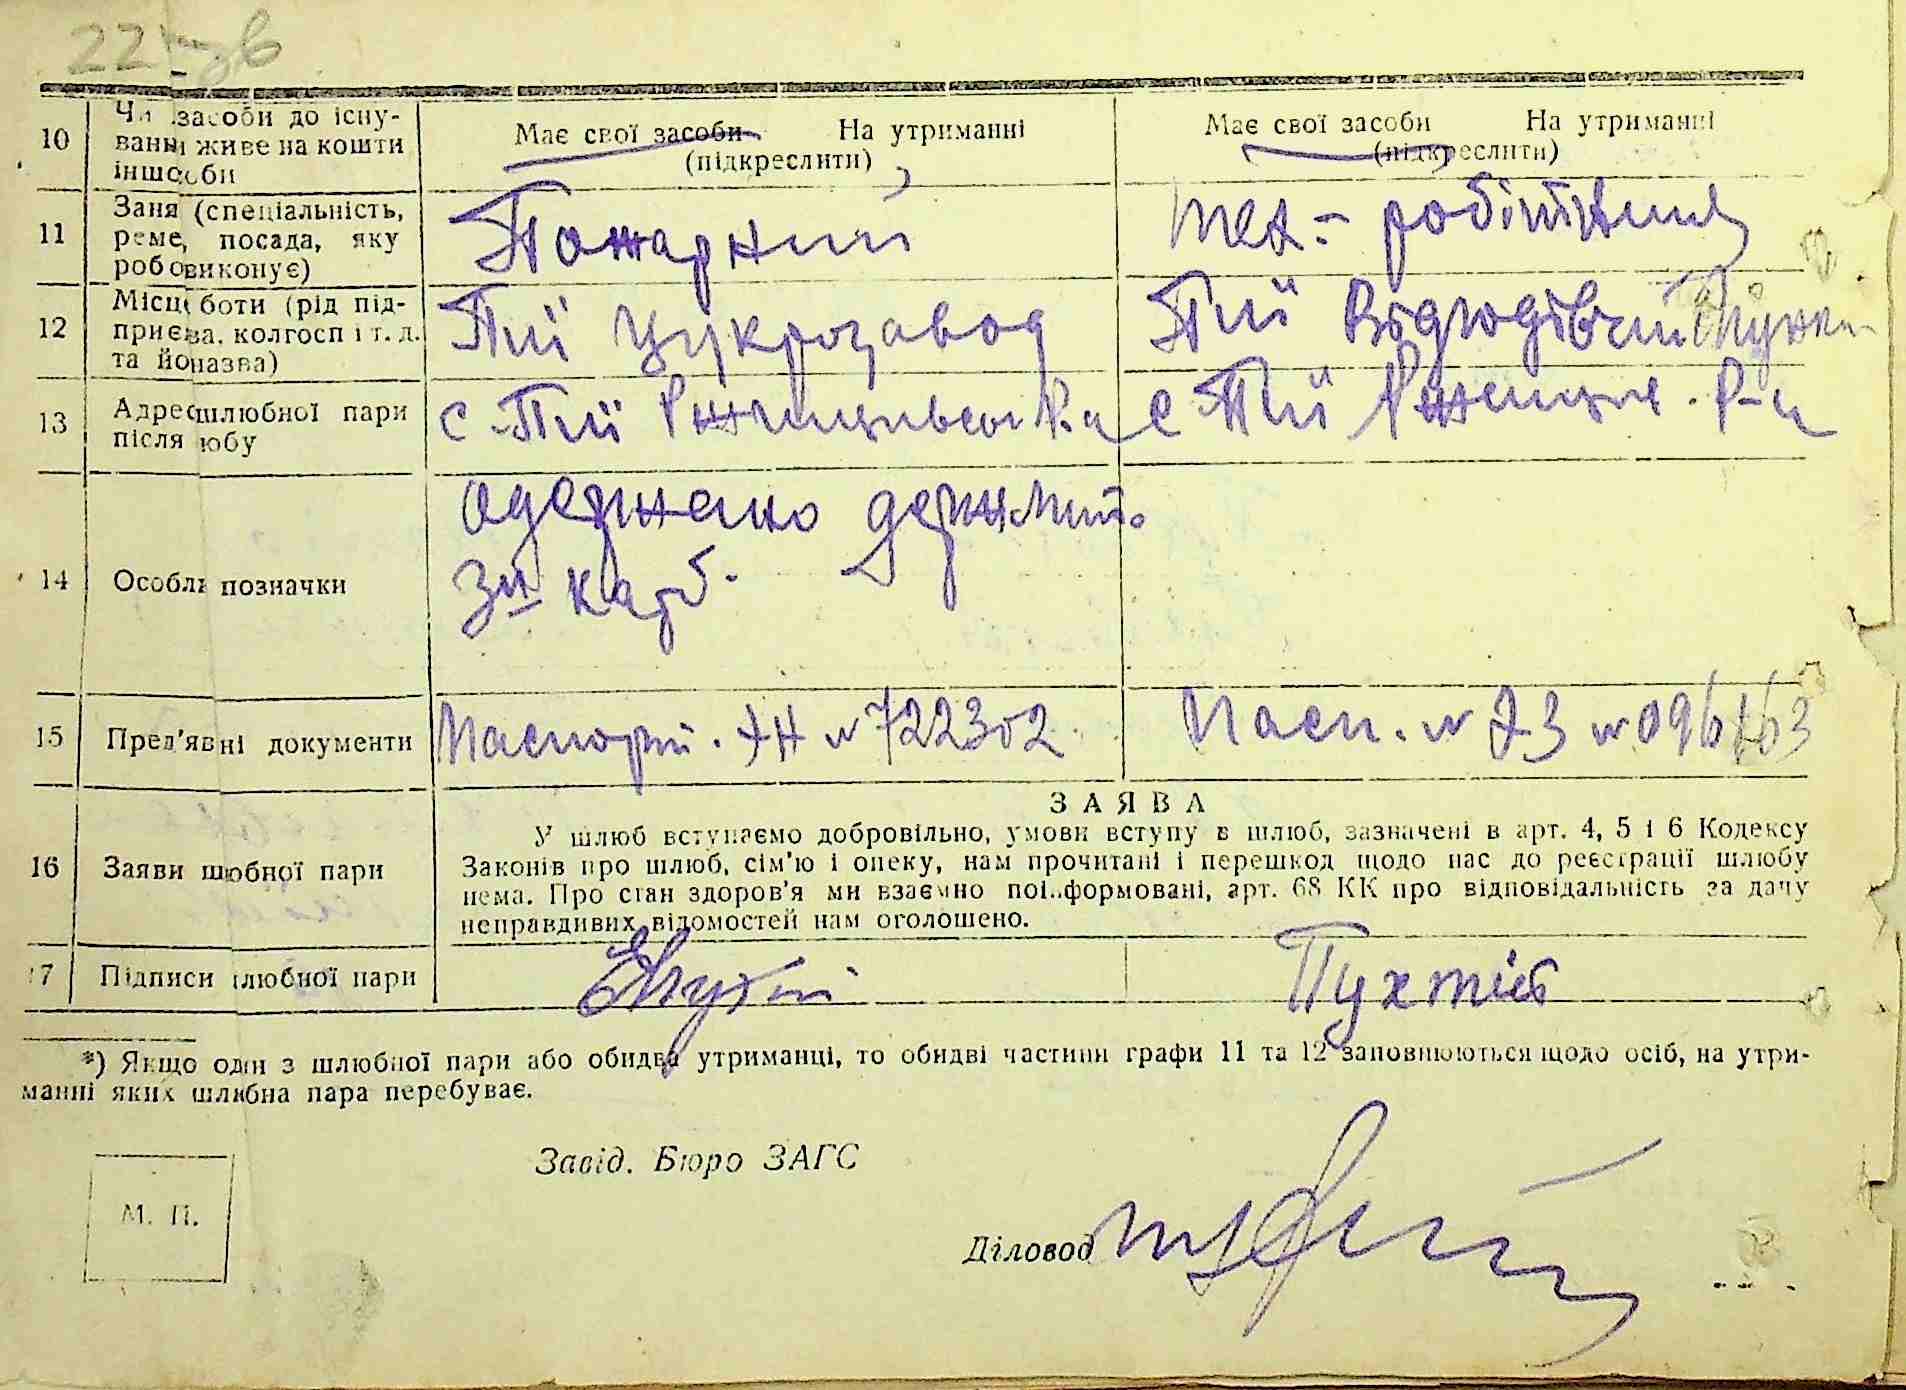 22 зв
10 Чи засоби до існу- Має свої засоби На утриманні Має свої засоби На утриманні
ванн живе на кошти (підкреслити) (підкреслити)
інш соби
11 Заня (спеціальність, Пожарний тех.- робітниця
реме, посада, яку
робо виконує)
12 Місц боти (рід під- Пії Цукрозавод Пії
приєм ва, колгосп і т. д.
та йо назва)
13 Адрес шлюбної пари с. Пії с Пії Р-н
після юбу
14 Особл позначки одержано держ.мит.
3 карб.
15 Пред'яв ні документи Паспорт. № 722302 Пасп. №
16 Заяви шлюбної пари ЗАЯВА
У шлюб вступаємо добровільно, умови вступу в шлюб, зазначені в арт. 4, 5 і 6 Кодексу
Законів про шлюб, сім'ю і опеку, нам прочитані і перешкод щодо нас до реєстрації шлюбу
нема. Про стан здоров'я ми взаємно поінформовані, арт. 68 КК про відповідальність за дачу
неправдивих відомостей нам оголошено.
17 Підписи шлюбної пари
*) Якщо один з шлюбної пари або обидва утриманці, то обидві частини графи 11 та 12 заповнюються щодо осіб, на утри-
манні яких шлюбна пара перебуває.
Завід. Бюро ЗАГС
М. П.
Діловод